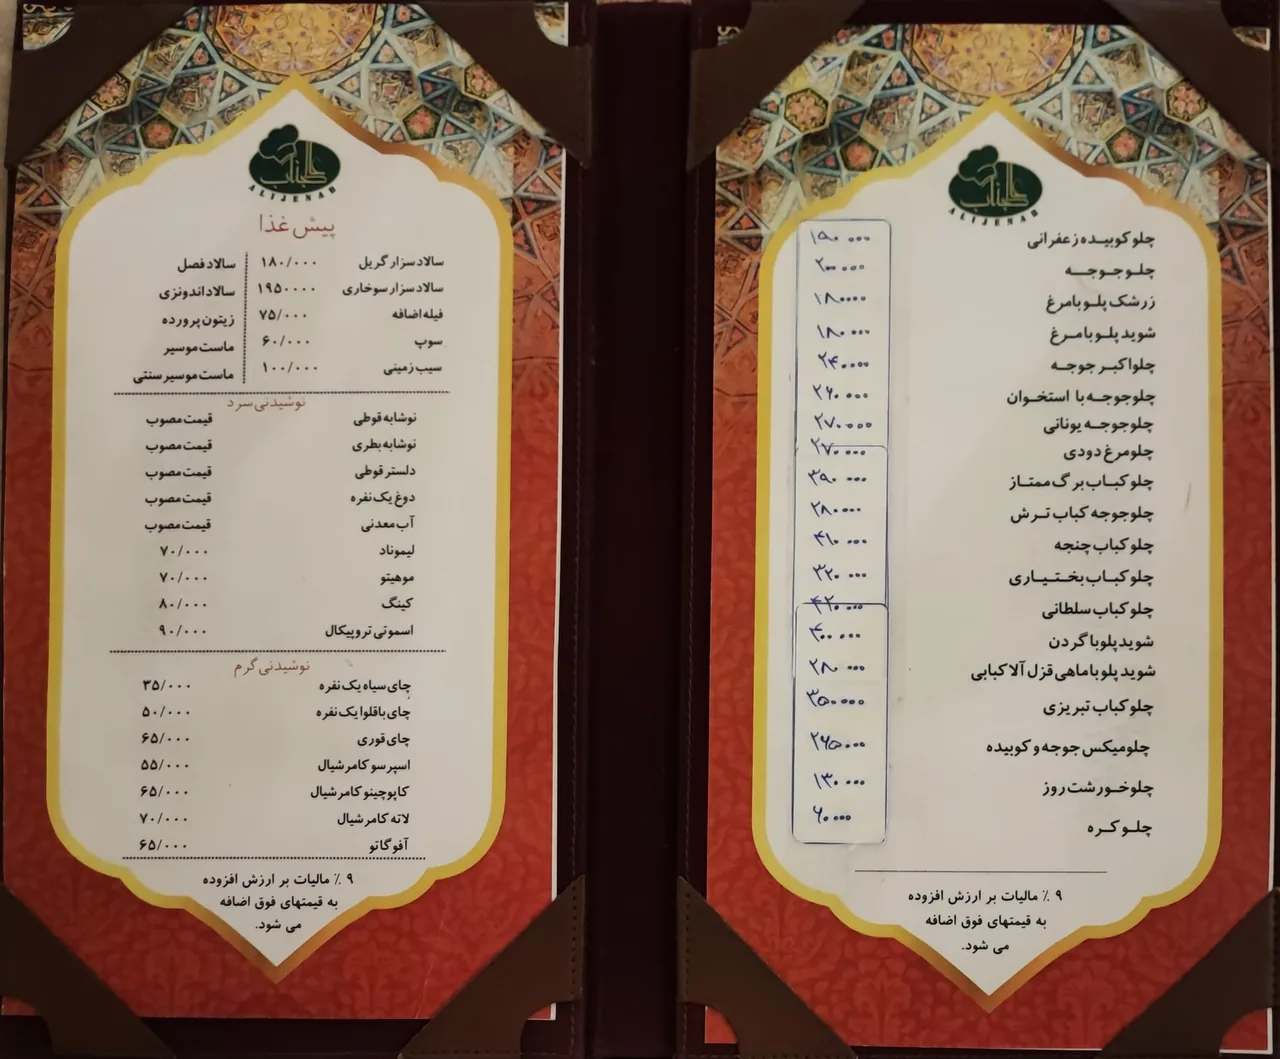 عالیجناب
ALIJENAB
چلو کوبیده زعفرانی ۱۹۰۰۰۰
چلو جوجه ۲۰۰۰۰۰
زرشک پلو با مرغ ۱۸۰۰۰۰
شوید پلو با مرغ ۱۸۰۰۰۰
چلو اکبر جوجه ۲۴۰۰۰۰
چلو جوجه با استخوان ۲۶۰۰۰۰
چلو جوجه یونانی ۲۷۰۰۰۰
چلو مرغ دودی ۲۷۰۰۰۰
چلو کباب برگ ممتاز ۳۹۰۰۰۰
چلو جوجه کباب ترش ۲۸۰۰۰۰
چلو کباب چنجه ۴۱۰۰۰۰
چلو کباب بختیاری ۳۲۰۰۰۰
چلو کباب سلطانی ۴۲۰۰۰۰
شوید پلو با گردن ۴۰۰۰۰۰
شوید پلو با ماهی قزل آلا کبابی ۲۸۰۰۰۰
چلو کباب تبریزی ۳۵۰۰۰۰
چلو میکس جوجه و کوبیده ۲۶۵۰۰۰
چلو خورشت روز ۱۳۰۰۰۰
چلو کره ۶۰۰۰۰
۹ ٪ مالیات بر ارزش افزوده
به قیمتهای فوق اضافه
می شود.
عالیجناب
ALIJENAB
پیش غذا
سالاد سزار گریل ۱۸۰/۰۰۰ سالاد فصل
سالاد سزار سوخاری ۱۹۵۰۰۰۰ سالاد اندونزی
فیله اضافه ۷۵/۰۰۰ زیتون پرورده
سوپ ۶۰/۰۰۰ ماست موسیر
سیب زمینی ۱۰۰/۰۰۰ ماست موسیر سنتی
نوشیدنی سرد
نوشابه قوطی قیمت مصوب
نوشابه بطری قیمت مصوب
دلستر قوطی قیمت مصوب
دوغ یک نفره قیمت مصوب
آب معدنی قیمت مصوب
لیموناد ۷۰/۰۰۰
موهیتو ۷۰/۰۰۰
کینگ ۸۰/۰۰۰
اسموتی تروپیکال ۹۰/۰۰۰
نوشیدنی گرم
چای سیاه یک نفره ۳۵/۰۰۰
چای باقلوا یک نفره ۵۰/۰۰۰
چای قوری ۶۵/۰۰۰
اسپرسو کامرشیال ۵۵/۰۰۰
کاپوچینو کامرشیال ۶۵/۰۰۰
لاته کامرشیال ۷۰/۰۰۰
آفوگاتو ۶۵/۰۰۰
۹ ٪ مالیات بر ارزش افزوده
به قیمتهای فوق اضافه
می شود.